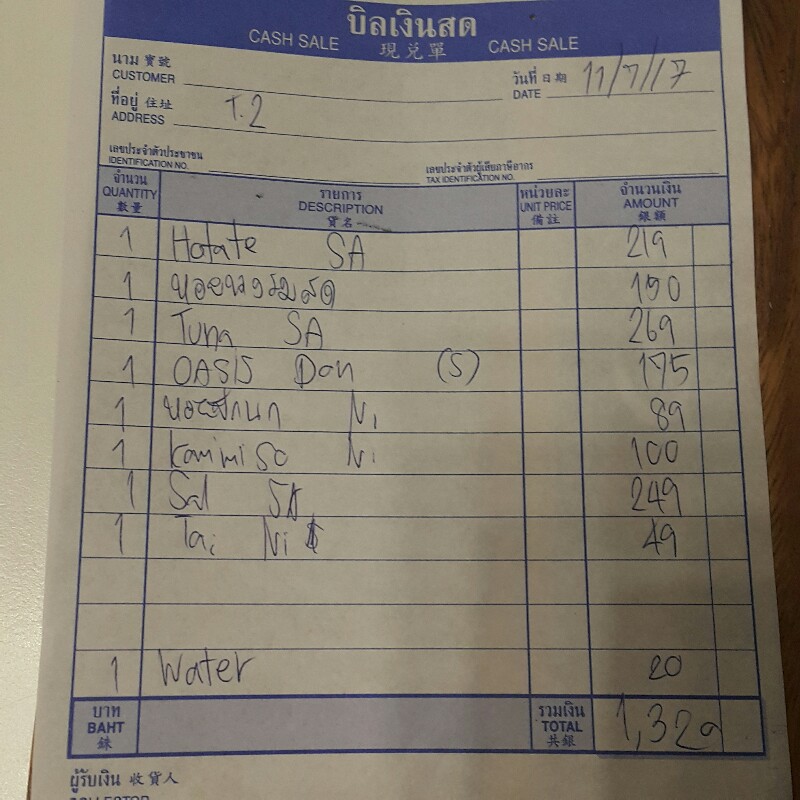 บิลเงินสด
CASH SALE 現兑單 CASH SALE
นาม 寶號
CUSTOMER
วันที่ 日期 11/7/17
DATE
ที่อยู่ 住址 T.2
ADDRESS
เลขประจำตัวประชาชน
IDENTIFICATION NO.
เลขประจำตัวผู้เสียภาษีอากร
TAX IDENTIFICATION NO.
จำนวน รายการ หน่วยละ จำนวนเงิน
QUANTITY DESCRIPTION UNIT PRICE AMOUNT
數量 貨名 備註 銀額
1 Hotate SA 219
1 หอยนางรมสด 190
1 Tuna SA 269
1 OASIS Don (S) 175
1 Ni 89
1 Kanimiso Ni 100
1 Sal SA 249
1 Tai Ni 49
1 Water 20
บาท รวมเงิน
BAHT TOTAL 1,329
銖 共銀
ผู้รับเงิน 收貨人
COLLECTOR